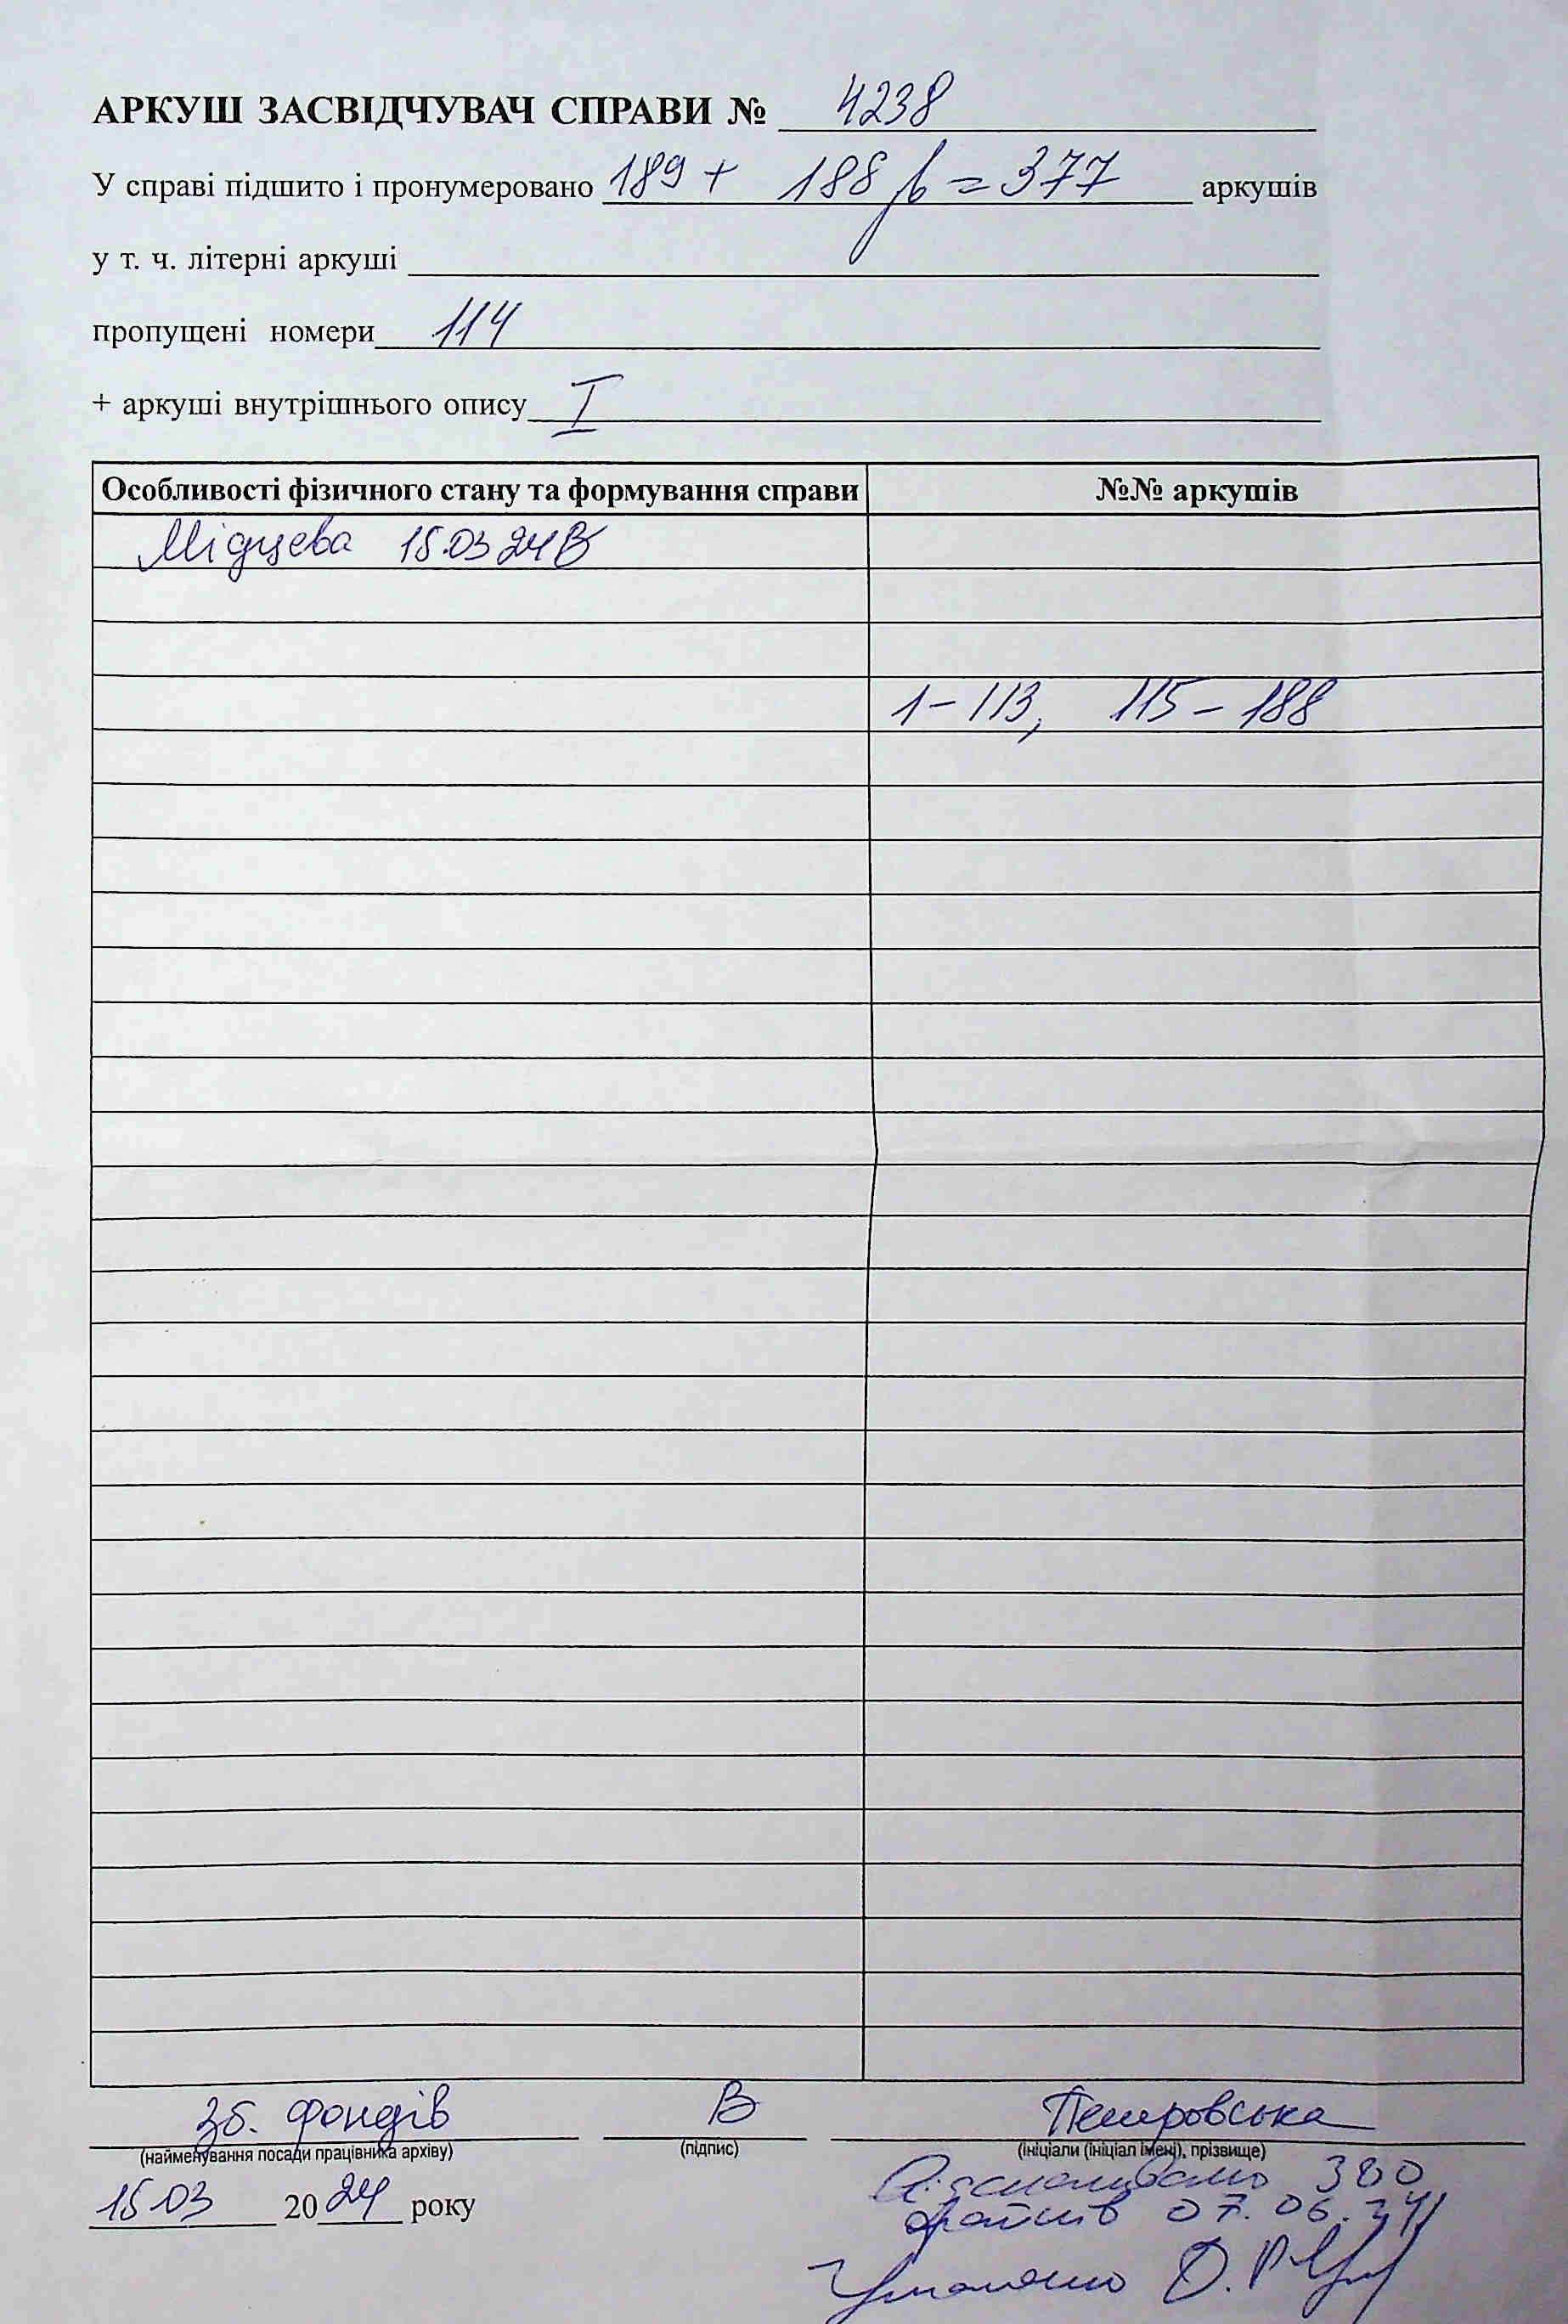 АРКУШ ЗАСВІДЧУВАЧ СПРАВИ № 4238
У справі підшито і пронумеровано 189 + 188 = 377 аркушів
у т. ч. літерні аркуші
пропущені номери 114
+ аркуші внутрішнього опису I
Особливості фізичного стану та формування справи №№ аркушів
15.03 24
1-113, 115-188
зб. фондів В Петровська
(найменування посади працівника архіву) (підпис) (ініціали (ініціал імені), прізвище)
15 03 2024 року
Відскановано 380
файлів 07.06.24